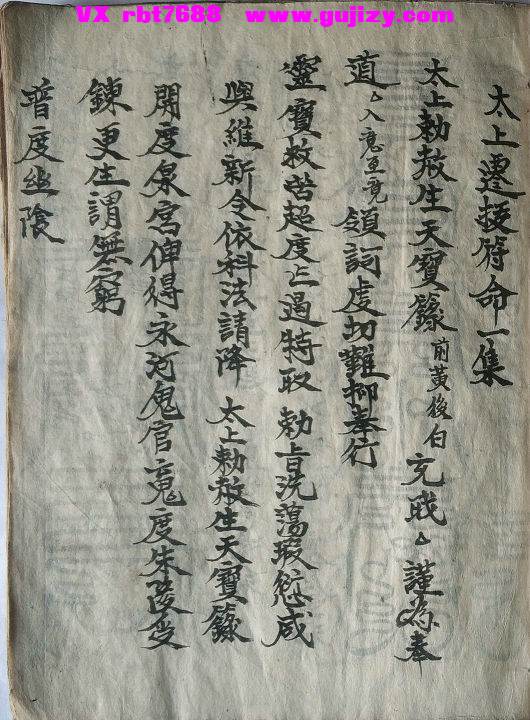 VX rbt7688 www.gujizy.com
太上遷拔符命一集
太上勅赦生天寶籙前黃後白充戝△謹為奉
道△入意至竟領詞虔切難抑奉行
靈寶救苦超度上過特取勅旨洗蕩瑕愆咸
與維新令依科法請降太上勅赦生天寶籙
開度泉宮俾得永河鬼官魂度朱陵受
鍊更生謂無窮
普度幽陰